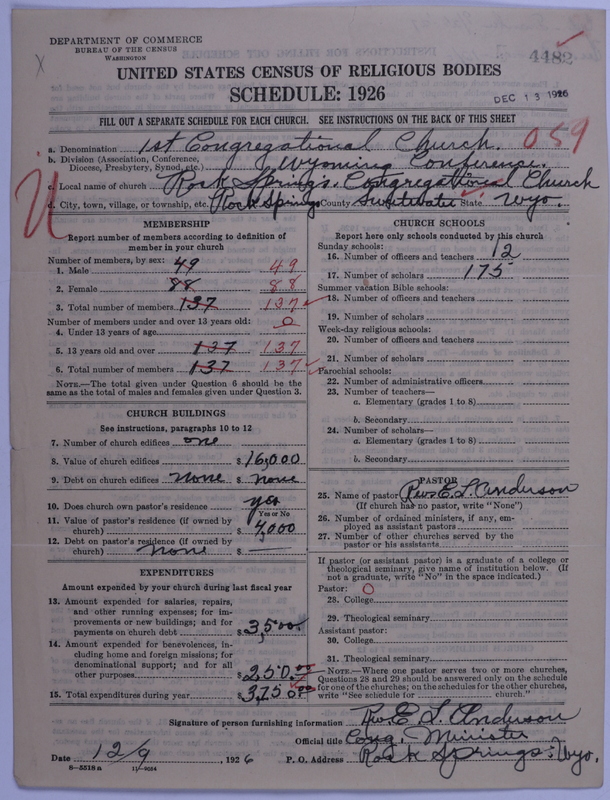 DEPARTMENT OF COMMERCE
BUREAU OF THE CENSUS
WASHINGTON
4482
UNITED STATES CENSUS OF RELIGIOUS BODIES
SCHEDULE: 1926
DEC 13 1926
FILL OUT A SEPARATE SCHEDULE FOR EACH CHURCH. SEE INSTRUCTIONS ON THE BACK OF THIS SHEET
a. Denomination 1st Congregational Church. 059
b. Division (Association, Conference, Diocese, Presbytery, Synod, etc.) Wyoming Conference.
c. Local name of church Rock Springs. Congregational Church
d. City, town, village, or township, etc. Rock Springs County Sweetwater State Wyo.
MEMBERSHIP
Report number of members according to definition of
member in your church
Number of members, by sex:
1. Male 49 49
2. Female 88 88
3. Total number of members 137 137
Number of members under and over 13 years old:
4. Under 13 years of age 0
5. 13 years old and over 137 137
6. Total number of members 137 137
NOTE.—The total given under Question 6 should be the
same as the total of males and females given under Question 3.
CHURCH BUILDINGS
See instructions, paragraphs 10 to 12
7. Number of church edifices one
8. Value of church edifices $16,000
9. Debt on church edifices none $ none
10. Does church own pastor's residence yes
Yes or No
11. Value of pastor's residence (if owned by
church) $4,000
12. Debt on pastor's residence (if owned by
church) none $ —
EXPENDITURES
Amount expended by your church during last fiscal year
13. Amount expended for salaries, repairs,
and other running expenses; for im-
provements or new buildings; and for
payments on church debt $3,500
14. Amount expended for benevolences, in-
cluding home and foreign missions; for
denominational support; and for all
other purposes $250.00
15. Total expenditures during year $3,750.00
CHURCH SCHOOLS
Report here only schools conducted by this church
Sunday schools:
16. Number of officers and teachers 12
17. Number of scholars 175
Summer vacation Bible schools:
18. Number of officers and teachers
19. Number of scholars
Week-day religious schools:
20. Number of officers and teachers
21. Number of scholars
Parochial schools:
22. Number of administrative officers
23. Number of teachers—
a. Elementary (grades 1 to 8)
b. Secondary
24. Number of scholars—
a. Elementary (grades 1 to 8)
b. Secondary
PASTOR
25. Name of pastor Rev. E. L. Anderson
(If church has no pastor, write "None")
26. Number of ordained ministers, if any, em-
ployed as assistant pastors
27. Number of other churches served by the
pastor or his assistants
If pastor (or assistant pastor) is a graduate of a college or
theological seminary, give name of institution below. (If
not a graduate, write "No" in the space indicated.)
Pastor: 0
28. College
29. Theological seminary
Assistant pastor:
30. College
31. Theological seminary
NOTE.—Where one pastor serves two or more churches,
Questions 28 and 29 should be answered only on the schedule
for one of the churches; on the schedules for the other churches,
write "See schedule for church."
Signature of person furnishing information Rev E L Anderson
Official title Cong. Minister
Date 12/9, 1926 P. O. Address Rock Springs: Wyo.
8—5518 a 11—9054